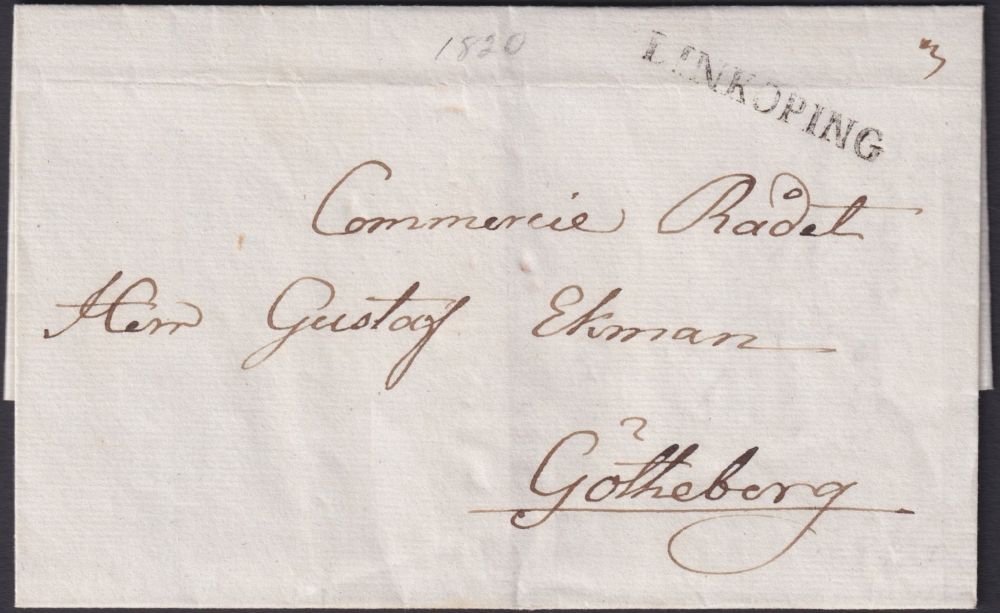 1820
LINKÖPING
3
Commercie Rådet
Herr Gustaf Ekman
Götheborg